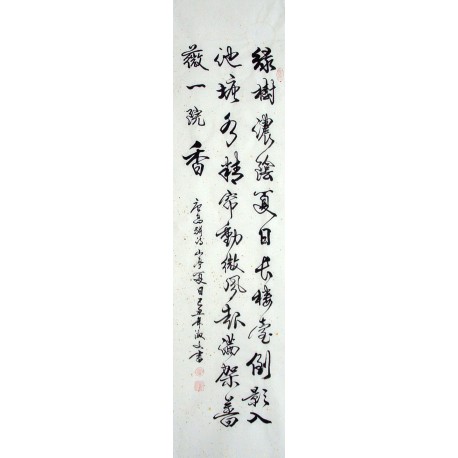 綠樹濃陰夏日长楼臺倒影入
池塘水精帘動微風起满架薔
薇一院香
唐高駢詩山亭夏日己丑淑文書